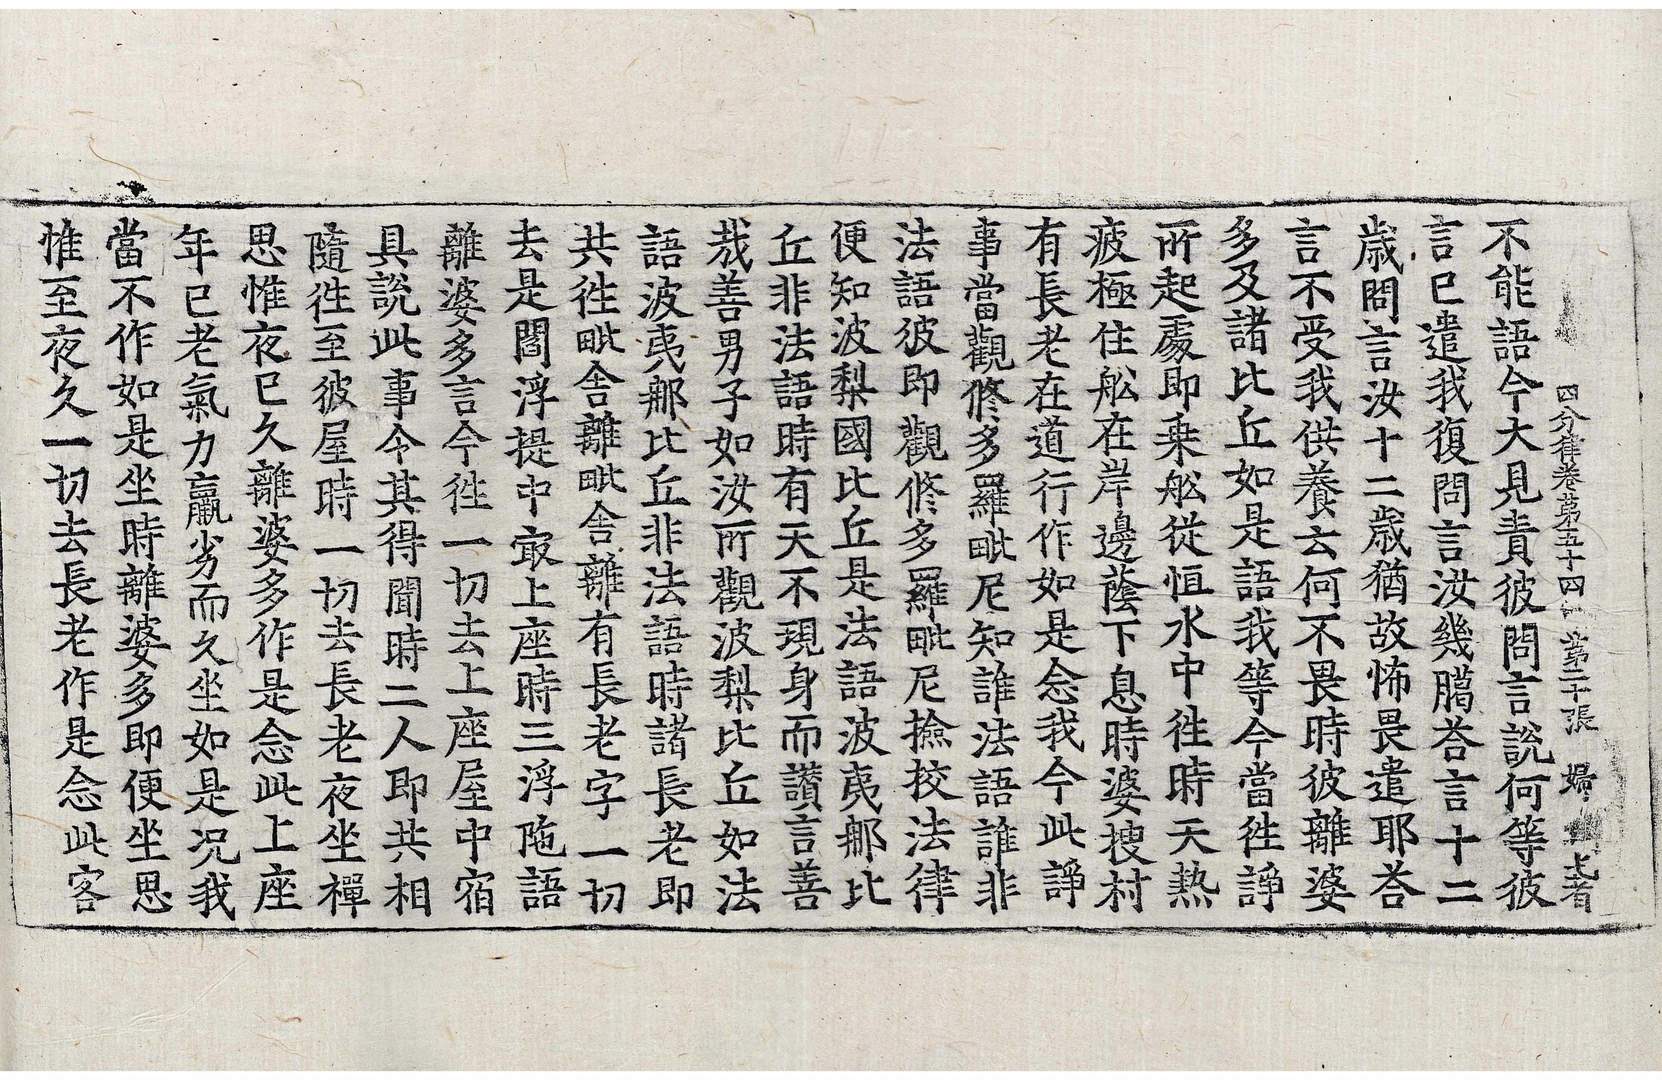 四分律卷第五十四 第二十張 婦
不能語今大見責彼問言說何等彼
言已遣我復問言汝幾臈荅言十二
歳問言汝十二歳猶故怖畏遣耶荅
言不受我供養云何不畏時彼離婆
多及諸比丘如是語我等今當徃諍
所起處即乗舩從恒水中徃時天熱
疲極住舩在岸邊蔭下息時婆搜村
有長老在道行作如是念我今此諍
事當觀修多羅毗尼知誰法語誰非
法語彼即觀修多羅毗尼撿挍法律
便知波梨國比丘是法語波夷郍比
丘非法語時有天不現身而讃言善
㢤善男子如汝所觀波梨比丘如法
語波夷郍比丘非法語時諸長老即
共徃毗舍離毗舍離有長老字一切
去是閻浮提中㝡上座時三浮陁語
離婆多言今徃一切去上座屋中宿
具說此事令其得聞時二人即共相
隨徃至彼屋時一切去長老夜坐禪
思惟夜已久離婆多作是念此上座
年已老氣力羸劣而久坐如是况我
當不作如是坐時離婆多即便坐思
惟至夜久一切去長老作是念此客